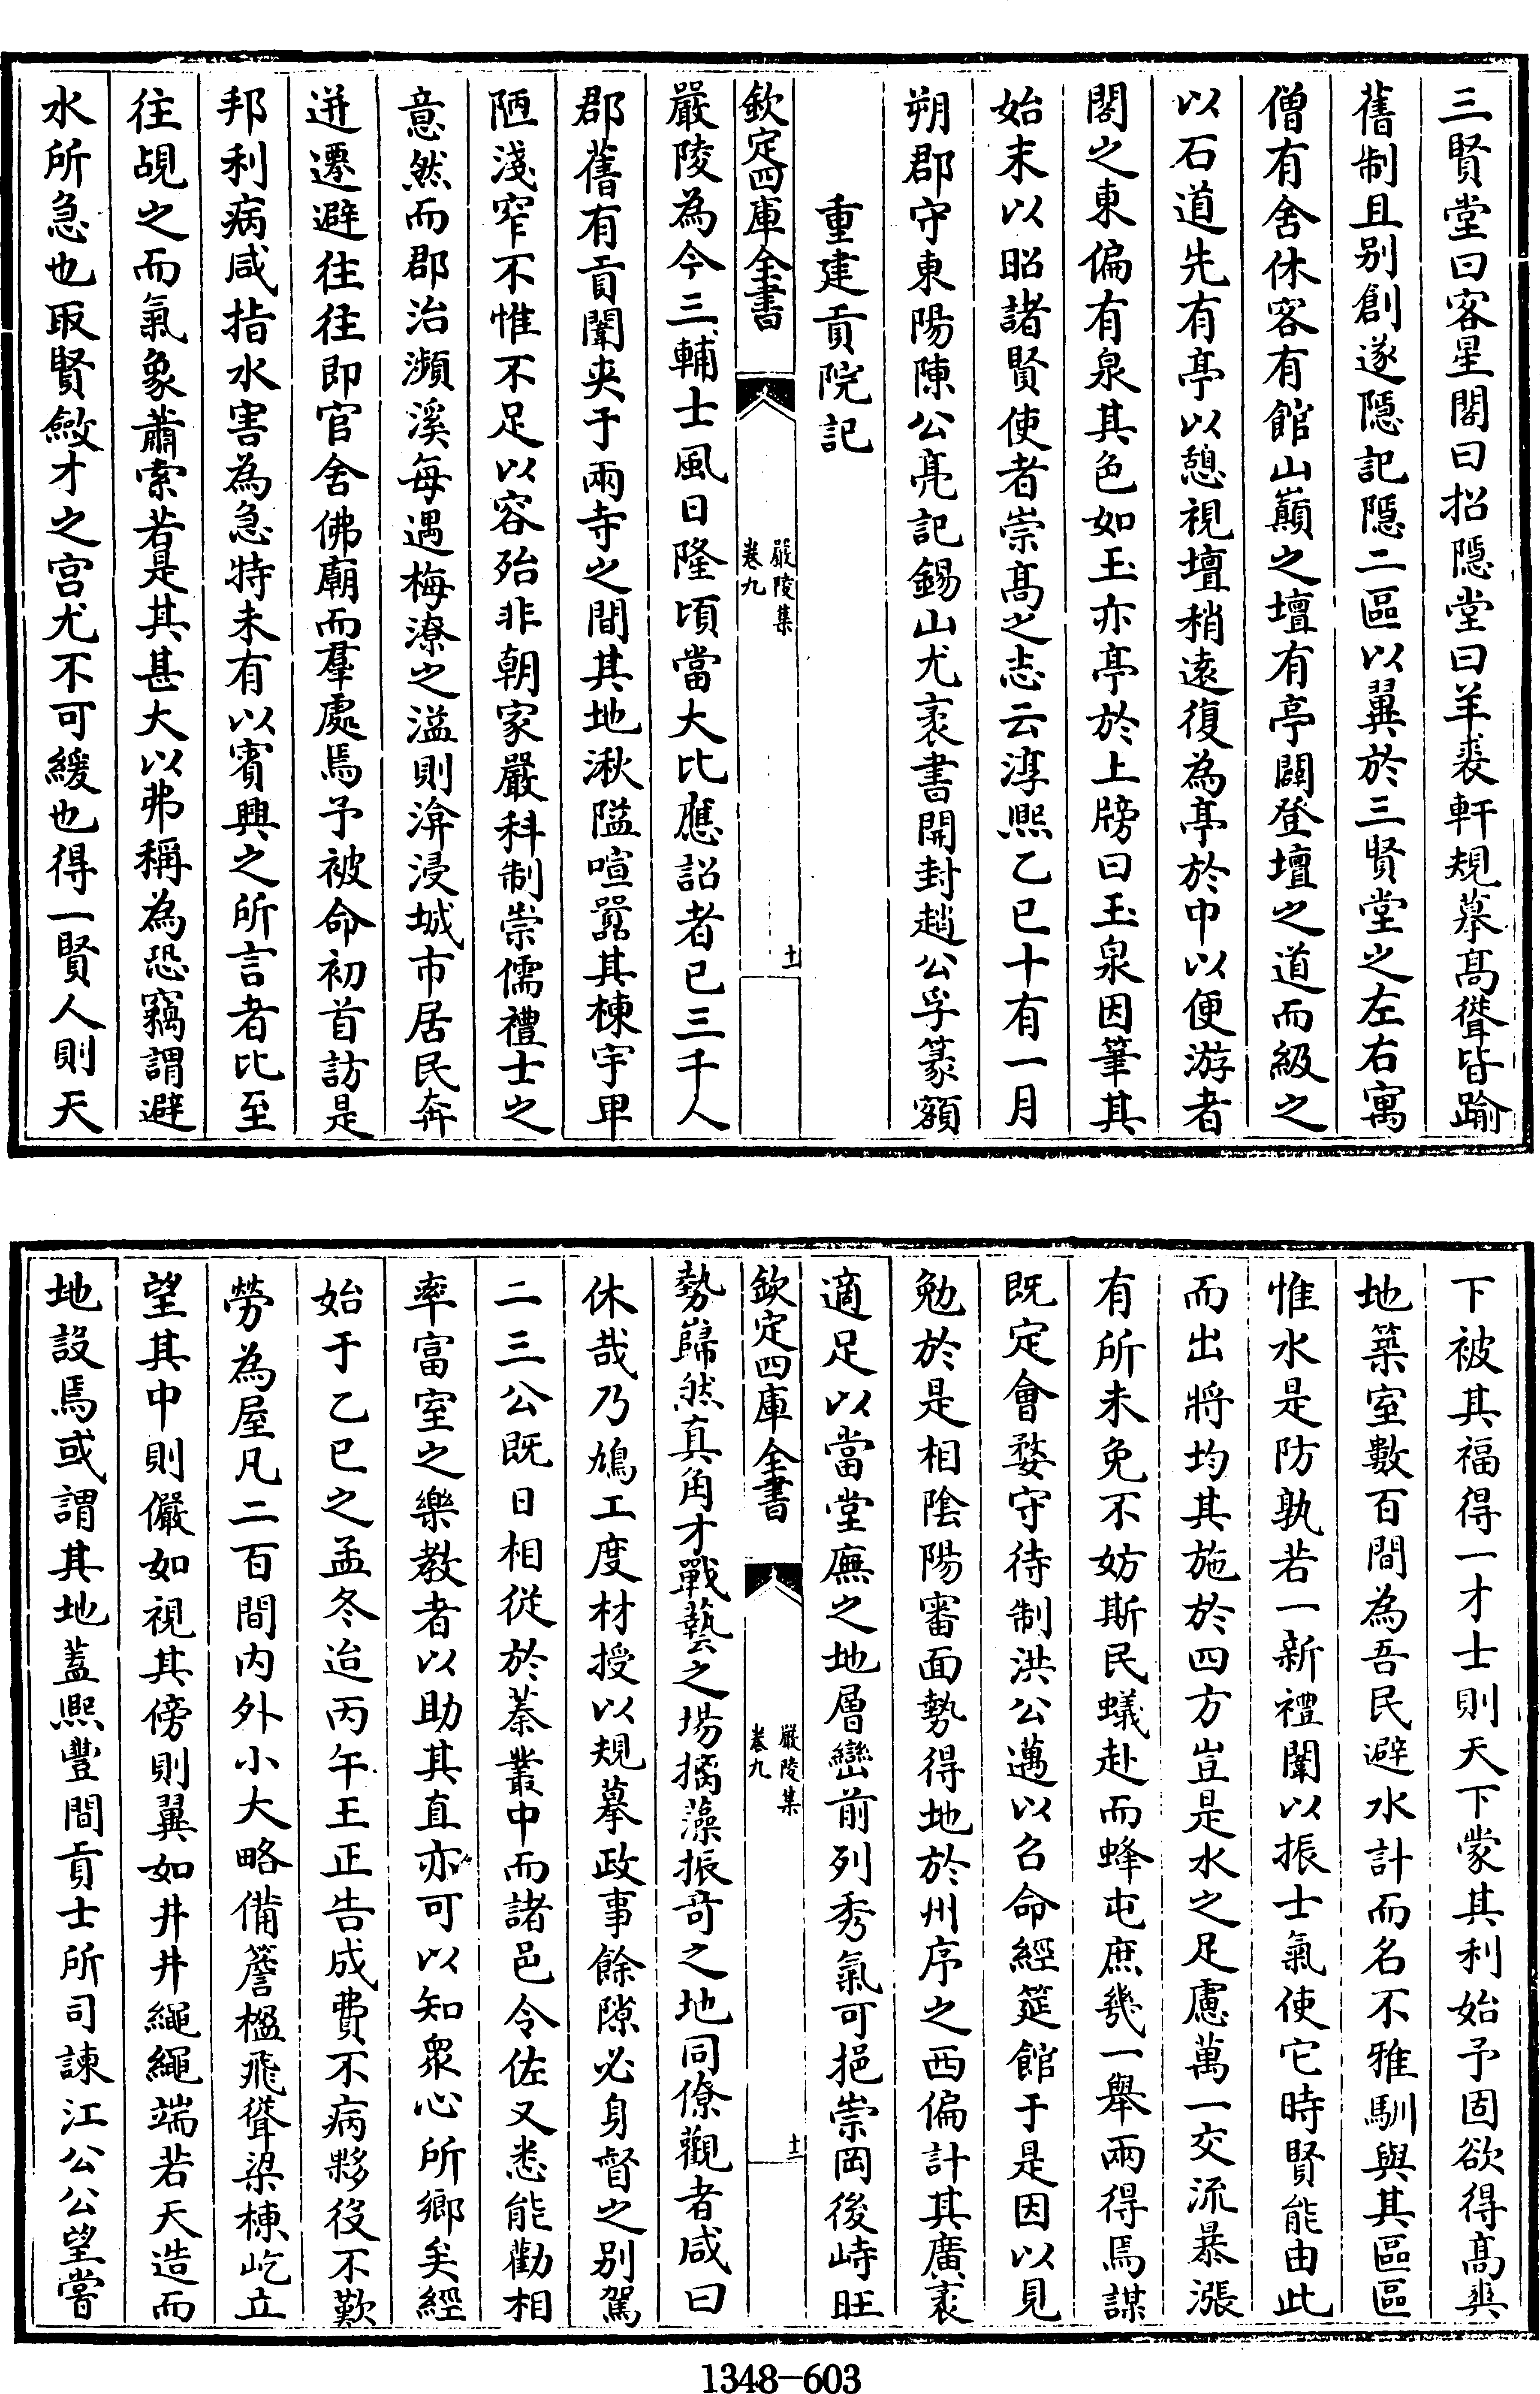 三賢堂曰客星閣曰招隠堂曰羊裘軒規摹髙聳皆踰
舊制且别創遂隠記隠二區以翼於三賢堂之左右寓
僧有舍休客有館山巔之壇有亭闢登壇之道而級之
以石道先有亭以憩視壇稍遠復為亭於中以便游者
閣之東偏有泉其色如玉亦亭於上牓曰玉泉因筆其
始末以昭諸賢使者崇髙之志云淳熙乙巳十有一月
朔郡守東陽陳公亮記錫山尤袤書開封趙公孚篆額
重建貢院記
欽定四庫全書
嚴陵集
卷九
十一
嚴陵為今三輔士風日隆頃當大比應詔者已三千人
郡舊有貢闈夾于兩寺之間其地湫隘喧囂其棟宇卑
陋淺窄不惟不足以容殆非朝家嚴科制崇儒禮士之
意然而郡治瀕溪每遇梅潦之溢則渰浸城市居民奔
迸遷避往往即官舍佛廟而羣處焉予被命初首訪是
邦利病咸指水害為急特未有以賓興之所言者比至
往覘之而氣象蕭索若是其甚大以弗稱為恐竊謂避
水所急也取賢斂才之宫尤不可緩也得一賢人則天
下被其福得一才士則天下蒙其利始予固欲得髙爽
地築室數百間為吾民避水計而名不雅馴與其區區
惟水是防孰若一新禮闈以振士氣使它時賢能由此
而出將均其施於四方豈是水之足慮萬一交流暴漲
有所未免不妨斯民蟻赴而蜂屯庶幾一舉兩得焉謀
既定會婺守待制洪公邁以召命經筵館于是因以見
勉於是相陰陽審面勢得地於州序之西偏計其廣袤
適足以當堂廡之地層巒前列秀氣可挹崇岡後峙旺
欽定四庫全書
嚴陵集
卷九
十二
勢巋然真角才戰藝之場摛藻振奇之地同僚觀者咸曰
休哉乃鳩工度材授以規摹政事餘隙必身督之别駕
二三公既日相從於蓁叢中而諸邑令佐又悉能勸相
率富室之樂教者以助其直亦可以知衆心所鄉矣經
始于乙巳之孟冬迨丙午王正告成費不病夥役不歎
勞為屋凡二百間内外小大略備簷楹飛聳梁棟屹立
望其中則儼如視其傍則翼如井井繩繩端若天造而
地設焉或謂其地蓋熙豐間貢士所司諫江公公望嘗
1348-603